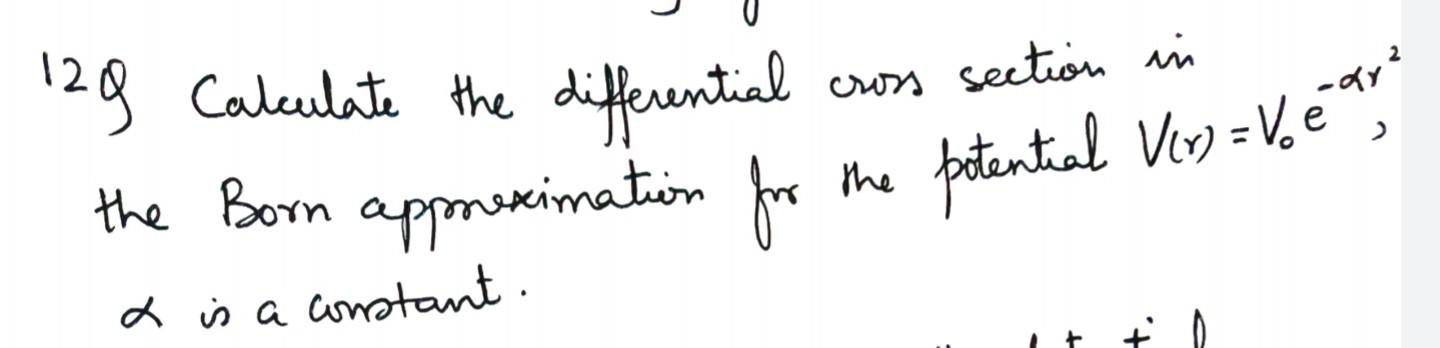 12Q Calculate the differential cross section in
the Born approximation for the potential V(r) = V₀ e^{-αr²},
α is a constant.